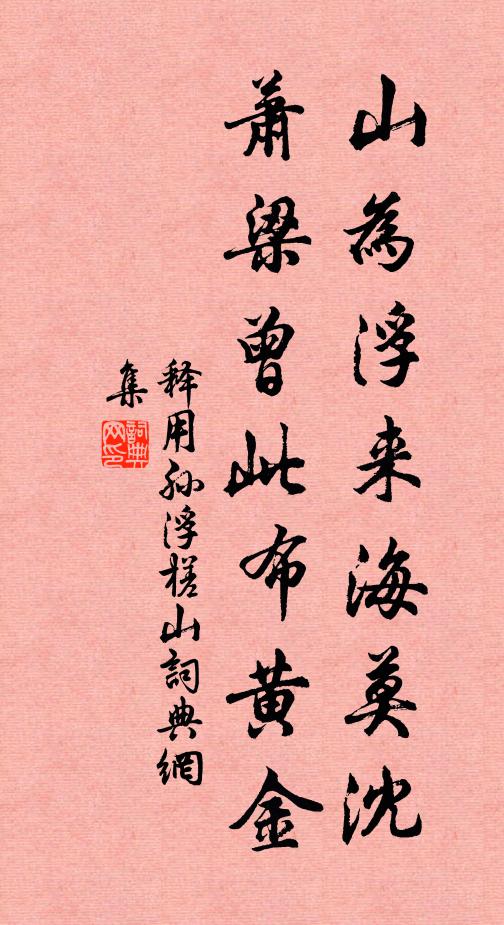 山為浮来海莫沈
蕭梁曾此布黄金
释用孙浮槎山詞典網
集
詞典
网印